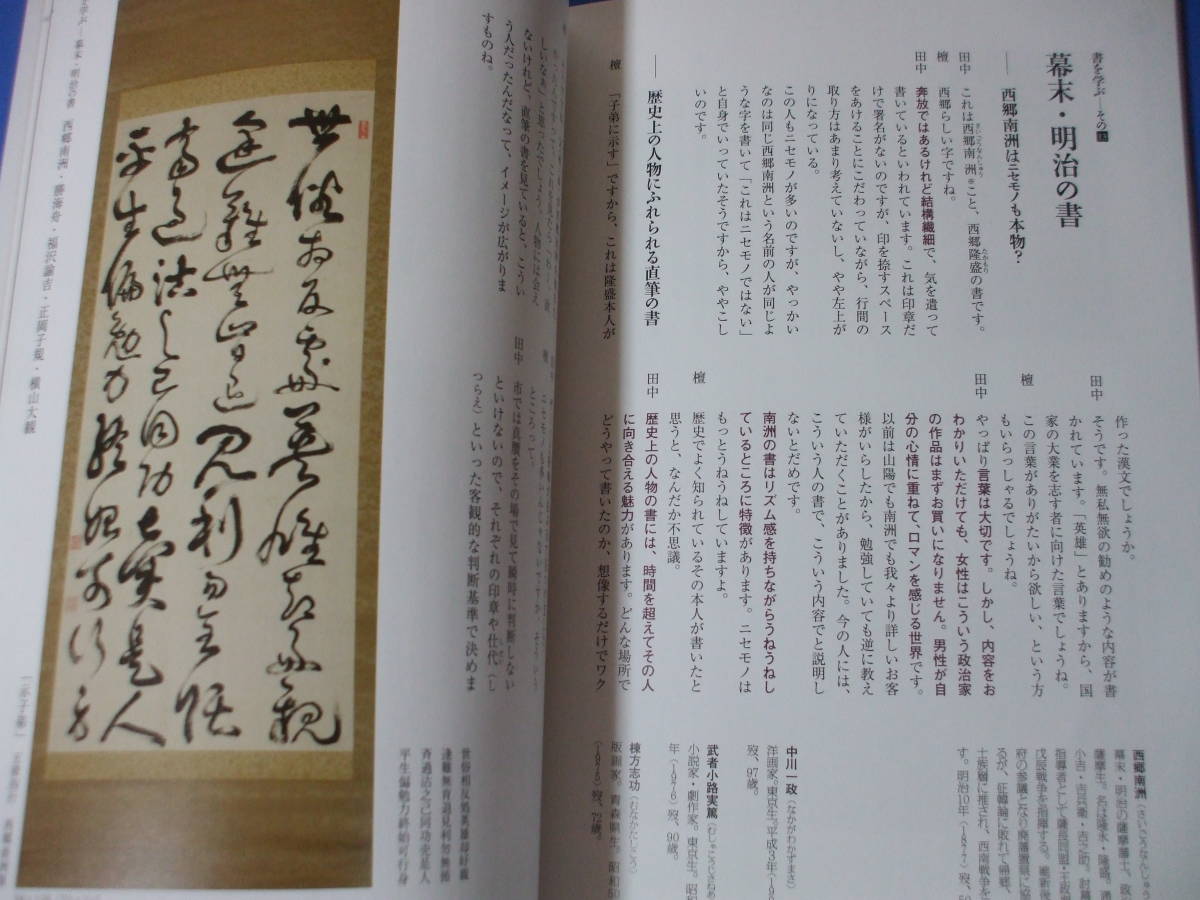 書を学ぶ―その
幕末・明治の書
―西郷南洲はニセモノも本物?
田中　これは西郷南洲※こと、西郷隆盛の書です。
檀　西郷らしい字ですね。
田中　奔放ではあるけれど結構繊細で、気を遣って
書いているといわれています。これは印章だ
けで署名がないのですが、印を捺すスペース
をあけることにこだわっていながら、行間の
取り方はあまり考えていないし、やや左上が
りになっている。
この人もニセモノが多いのですが、やっかい
なのは同じ西郷南洲という名前の人が同じよ
うな字を書いて「これはニセモノではない」
と自身でいっていたそうですから、ややこし
いのです。
―歴史上の人物にふれられる直筆の書
檀　「子弟に示す」ですから、これは隆盛本人が
作った漢文でしょうか。
田中　そうです。無私無欲の勧めのような内容が書
かれています。「英雄」とありますから、国
家の大業を志す者に向けた言葉でしょうね。
檀　この言葉がありがたいから欲しい、という方
もいらっしゃるでしょうね。
田中　やっぱり言葉は大切です。しかし、内容をお
わかりいただけても、女性はこういう政治家
の作品はまずお買いになりません。男性が自
分の心情に重ねて、ロマンを感じる世界です。
以前は山陽でも南洲でも我々より詳しいお客
様がいらしたから、勉強していても逆に教え
ていただくことがありました。今の人には、
こういう人の書で、こういう内容でと説明し
ないとだめです。
南洲の書はリズム感を持ちながらうねうねし
ているところに特徴があります。ニセモノは
もっとうねうねしていますよ。
檀　歴史でよく知られているその本人が書いたと
思うと、なんだか不思議。
田中　歴史上の人物の書には、時間を超えてその人
に向き合える魅力があります。どんな場所で
どうやって書いたのか、想像するだけでワク
西郷南洲
幕末・明治の薩摩藩士、政
薩摩生。名は隆永・隆盛。通
小吉・吉兵衛・吉之助。討幕
指導者として薩長同盟・王政
戊辰戦争を指揮する。維新後
府の参議となり廃藩置県に
るが、征韓論に敗れて帰郷、
士族層に推され、西南戦争を
す。明治10年(1877)歿、
中川一政(なかがわかずまさ)
洋画家。東京生。平成3年(19
歿、97歳。
武者小路実篤(むしゃこうじさねあ
小説家・劇作家。東京生。昭和
年(1976)歿、90歳。
棟方志功(むなかたしこう)
版画家。青森県生。昭和50
(1975)歿、72歳。
しいなあ」と思ったでしょう。人物には会え
ないけれど、直筆の書を見ていると、こうい
う人だったんだなって、イメージが広がりま
すものね。
ところって。
田中　市では真贋をその場で見て瞬時に判断しない
といけないので、それぞれの印章や仕代(し
つらえ)といった客観的な判断基準で決めま
世俗相反処英雄却好親
逢難無肯退見利勿全循
斉過沽之己同功売是人
平生偏勉力終始可行身
を学ぶ―幕末・明治の書　西郷南洲・勝海舟・福沢諭吉・正岡子規・横山大観